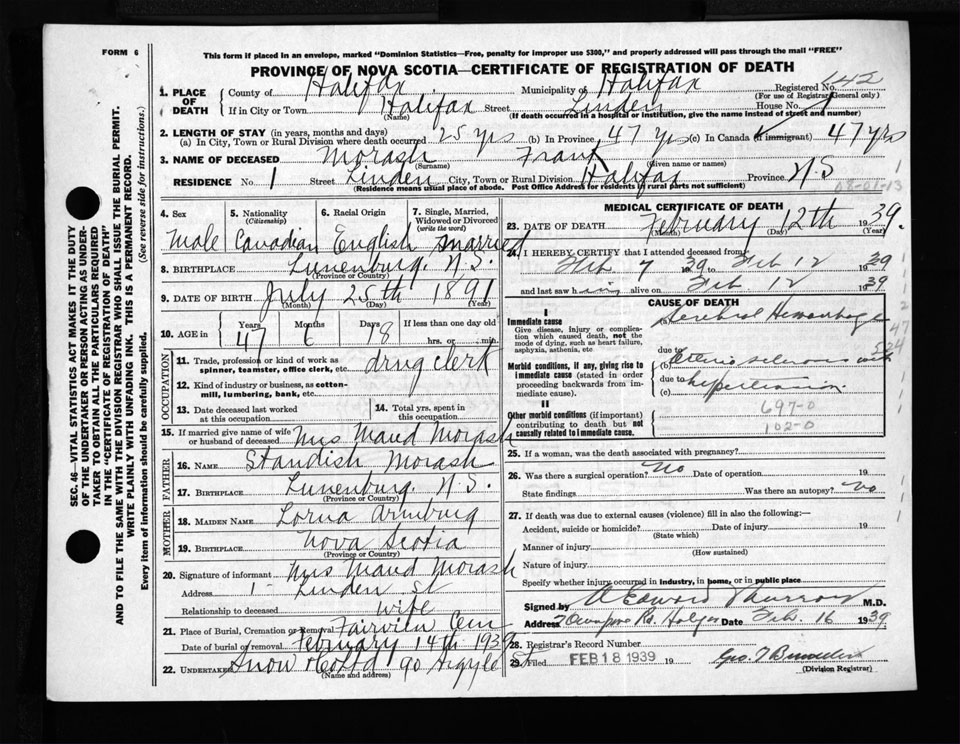 FORM 6
This form if placed in an envelope, marked "Dominion Statistics—Free, penalty for improper use $300," and properly addressed will pass through the mail "FREE"
PROVINCE OF NOVA SCOTIA—CERTIFICATE OF REGISTRATION OF DEATH
1. PLACE OF DEATH
County of Halifax Municipality of Halifax Registered No. 642
(For use of Registrar General only)
If in City or Town Halifax Street Linden House No. 1
(Name) (If death occurred in a hospital or institution, give the name instead of street and number)
2. LENGTH OF STAY (in years, months and days)
(a) In City, Town or Rural Division where death occurred 25 yrs (b) In Province 47 yrs (c) In Canada (if immigrant) 47 yrs
3. NAME OF DECEASED Morash Frank
(Surname) (Given name or names)
RESIDENCE No. 1 Street Linden City, Town or Rural Division Halifax Province N.S
(Residence means usual place of abode. Post Office Address for residents in rural parts not sufficient)
08-01-13
4. Sex 5. Nationality (Citizenship) 6. Racial Origin 7. Single, Married, Widowed or Divorced (write the word)
Male Canadian English married
8. BIRTHPLACE Lunenburg. N.S.
(Province or Country)
9. DATE OF BIRTH July 25th 1891
(Month) (Day) (Year)
10. AGE in Years Months Days If less than one day old
47 6 8 hrs. or min.
OCCUPATION
11. Trade, profession or kind of work as spinner, teamster, office clerk, etc. drug clerk
12. Kind of industry or business, as cotton-mill, lumbering, bank, etc.
13. Date deceased last worked at this occupation
14. Total yrs. spent in this occupation
15. If married give name of wife or husband of deceased Mrs Maud Morash
FATHER
16. NAME Standish Morash
17. BIRTHPLACE Lunenburg. N.S.
(Province or Country)
MOTHER
18. MAIDEN NAME Lorna
19. BIRTHPLACE Nova Scotia
(Province or Country)
20. Signature of informant Mrs Maud Morash
Address 1- Linden St
Relationship to deceased wife
21. Place of Burial, Cremation or Removal Fairview Cem
Date of burial or removal February 14th 1939
22. Undertaker Snow & Co Ltd 90 Argyle St
(Name and address)
MEDICAL CERTIFICATE OF DEATH
23. DATE OF DEATH February 12th 1939.
(Month) (Day) (Year)
24. I HEREBY CERTIFY that I attended deceased from
Feb 7 1939 to Feb 12 1939
and last saw him alive on Feb 12 1939
CAUSE OF DEATH
I
Immediate cause
Give disease, injury or complication which caused death, not the mode of dying, such as heart failure, asphyxia, asthenia, etc
(a) Cerebral Hemorrhage
due to
Morbid conditions, if any, giving rise to immediate cause (stated in order proceeding backwards from immediate cause)
(b) Arterio sclerosis with
due to
(c) hypertension.
II
Other morbid conditions (if important) contributing to death but not causally related to immediate cause.
697-0
102-0
25. If a woman, was the death associated with pregnancy?
26. Was there a surgical operation? No Date of operation 19
State findings Was there an autopsy? No
27. If death was due to external causes (violence) fill in also the following:—
Accident, suicide or homicide? Date of injury 19
(State which)
Manner of injury
(How sustained)
Nature of injury
Specify whether injury occurred in industry, in home, or in public place
Signed by A Edward Murray M.D.
Address Rd. Halifax Date Feb. 16 1939
28. Registrar's Record Number
29. Filed FEB 18 1939 19 Geo. T
(Division Registrar)
SEC. 46—VITAL STATISTICS ACT MAKES IT THE DUTY
OF THE UNDERTAKER OR PERSON ACTING AS UNDERTAKER TO OBTAIN ALL THE PARTICULARS REQUIRED
IN THE "CERTIFICATE OF REGISTRATION OF DEATH"
AND TO FILE THE SAME WITH THE DIVISION REGISTRAR WHO SHALL ISSUE THE BURIAL PERMIT.
WRITE PLAINLY WITH UNFADING INK. THIS IS A PERMANENT RECORD.
Every item of information should be carefully supplied. (See reverse side for instructions.)